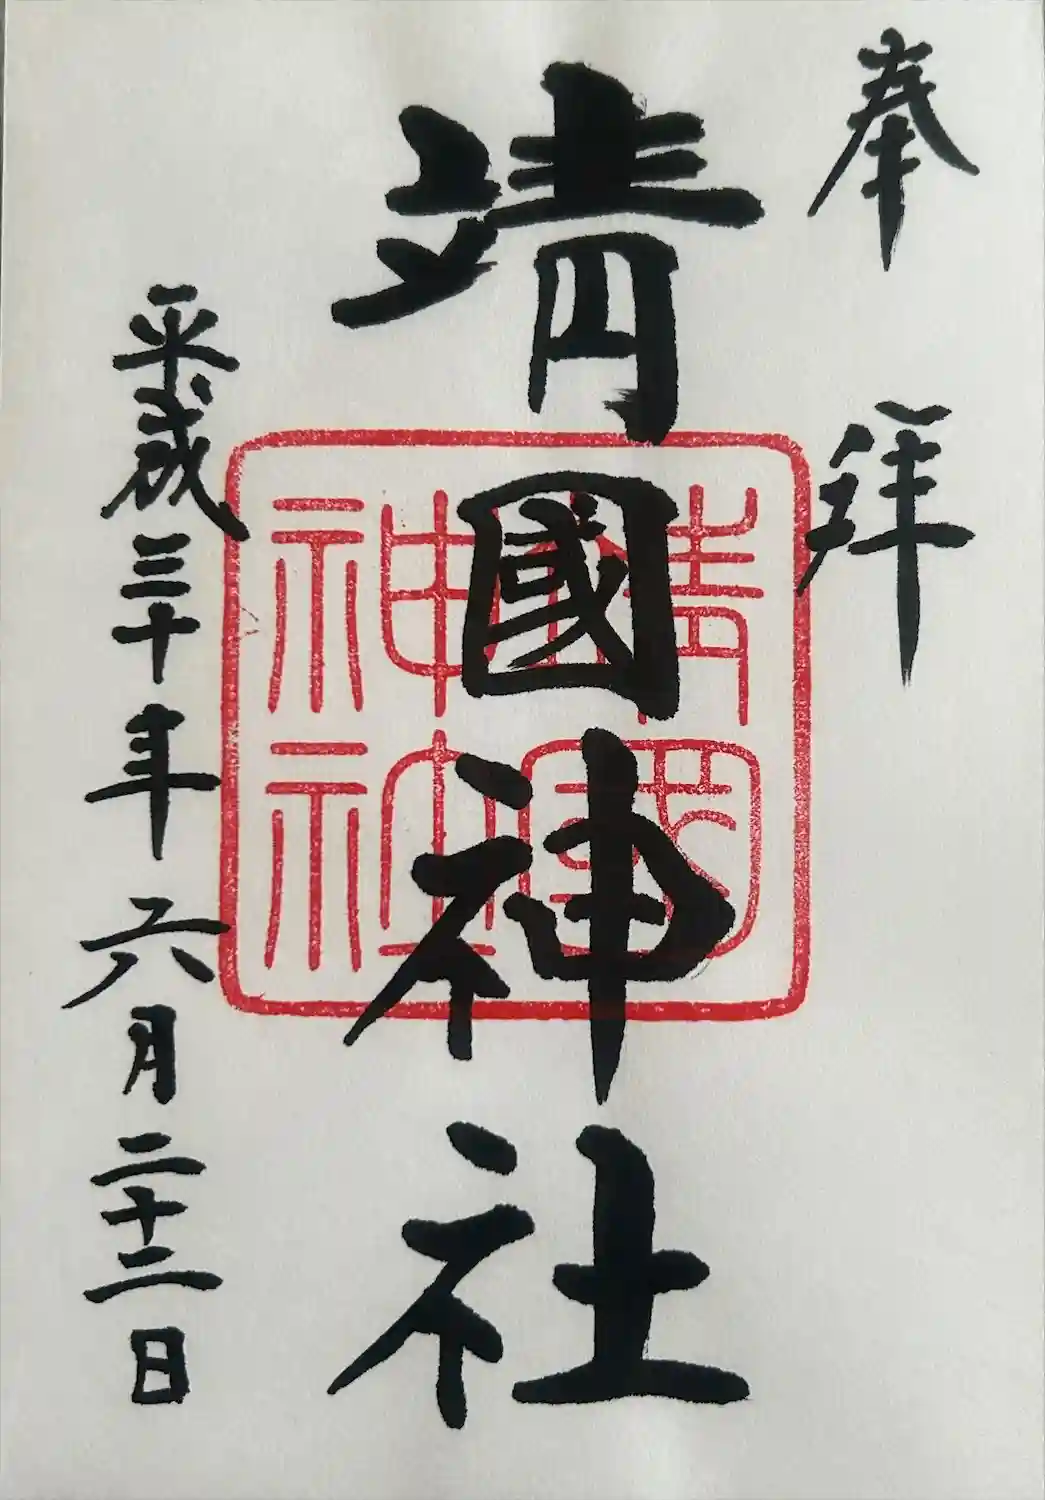 奉拝
靖國神社
靖國
神社
平成三十年六月二十二日